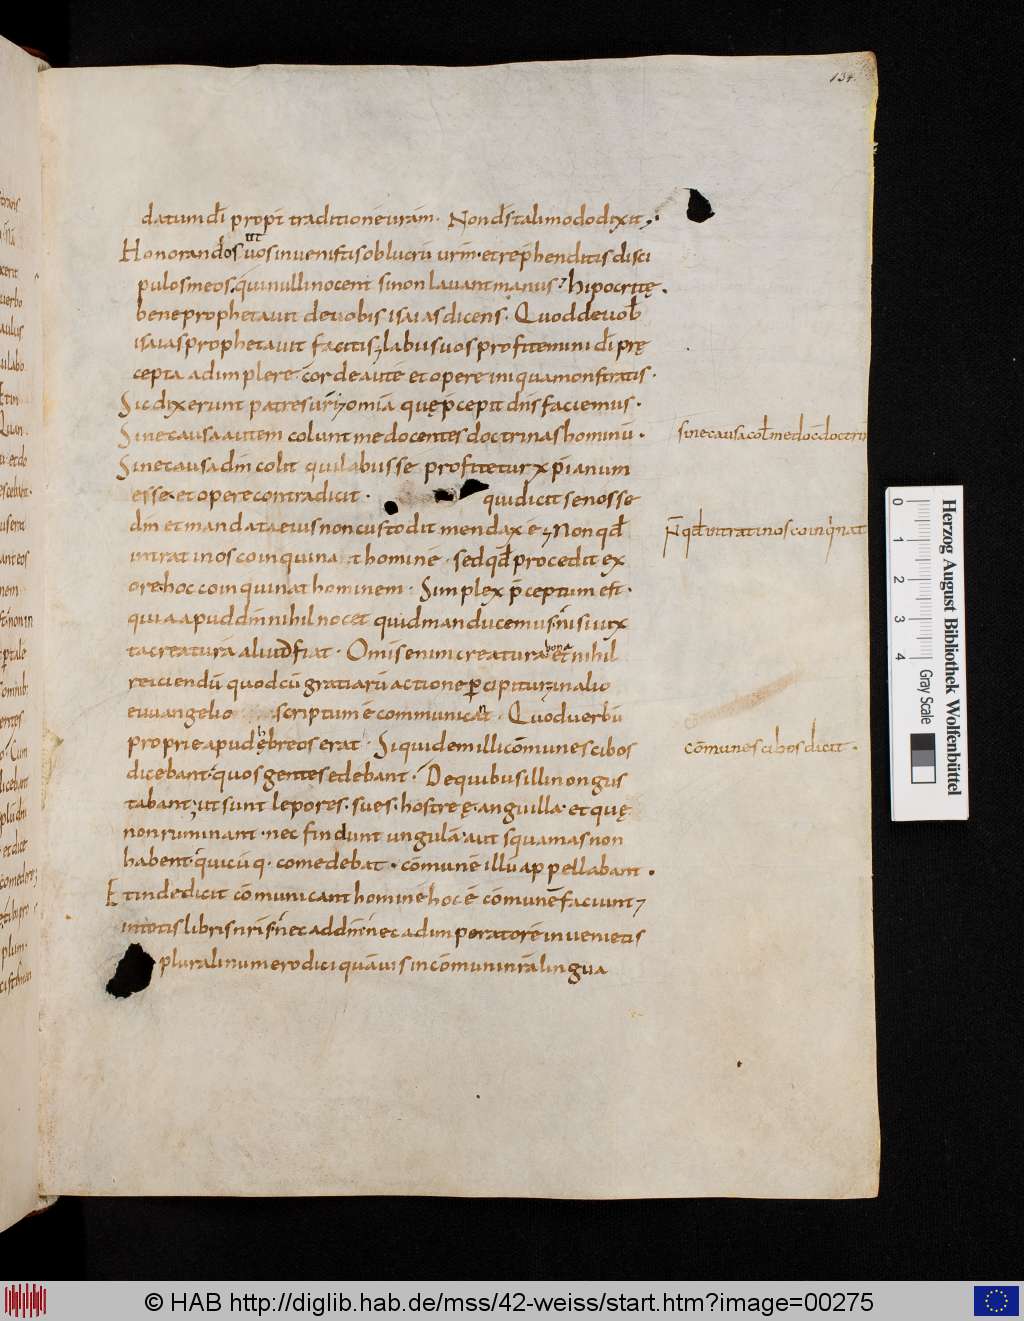 134
datum dī propt̄ traditionē urām. Non dn̄s tali modo dixit.
Honorandos uos inuenistis ob lucrū urm̄. et rephenditis disci
pulos meos. qui nulli nocent si non lauant manus. hipocritę.
bene prophetauit de uobis isaias dicens. Quod de uob
isaias prophetauit facitis. labiis uos profitemini dī pre
cepta adimplere. corde autē et opere iniqua monstratis.
Sic dixerunt patres uri. omia quę p̄cepit dn̄s faciemus.
Sine causa autem colunt me docentes doctrinas hominū.
Sine causa dm̄ colit qui labiis se profitetur xp̄ianum
esse. et opere contradicit. qui dicit se nosse
dm̄ et mandata eius non custodit mendax ē. Non qd̄
intrat in os coinquinat hominē. sed qd̄ procedit ex
ore. hoc coinquinat hominem. Simplex p̄ceptum est.
quia apud dm̄ nihil nocet quid manducemus. nisi iux
ta creaturā aliud fiat. Omis enim creatura bona et nihil
reiciendū quod cū gratiarū actione p̄cipitur. in alio
euuangelio scriptum ē communicat. Quod uerbū
proprie apud hębreos erat. Siquidem illi cōmunes cibos
dicebant. quos gentes edebant. De quibus illi non gus
tabant. ut sunt lepores. sues. hostreę. anguilla. et quę
non ruminant. nec findunt ungulā. aut squamas non
habent. quicūq. comedebat. cōmunē illū appellabant.
Et inde dicit cōmunicant hominē hoc ē cōmunē faciunt
in totis libris nr̄is. nec ad dm̄. nec ad imperatorē inuenietis
plurali numero dici quāuis in cōmuni nrā lingua
sine causa col̄ me doc̄ doctrin
N̄ qd̄ intrat in os coinqinat
cōmunes cibos dicit.
Herzog August Bibliothek Wolfenbüttel
Gray Scale
0
1
2
3
4
© HAB http://diglib.hab.de/mss/42-weiss/start.htm?image=00275